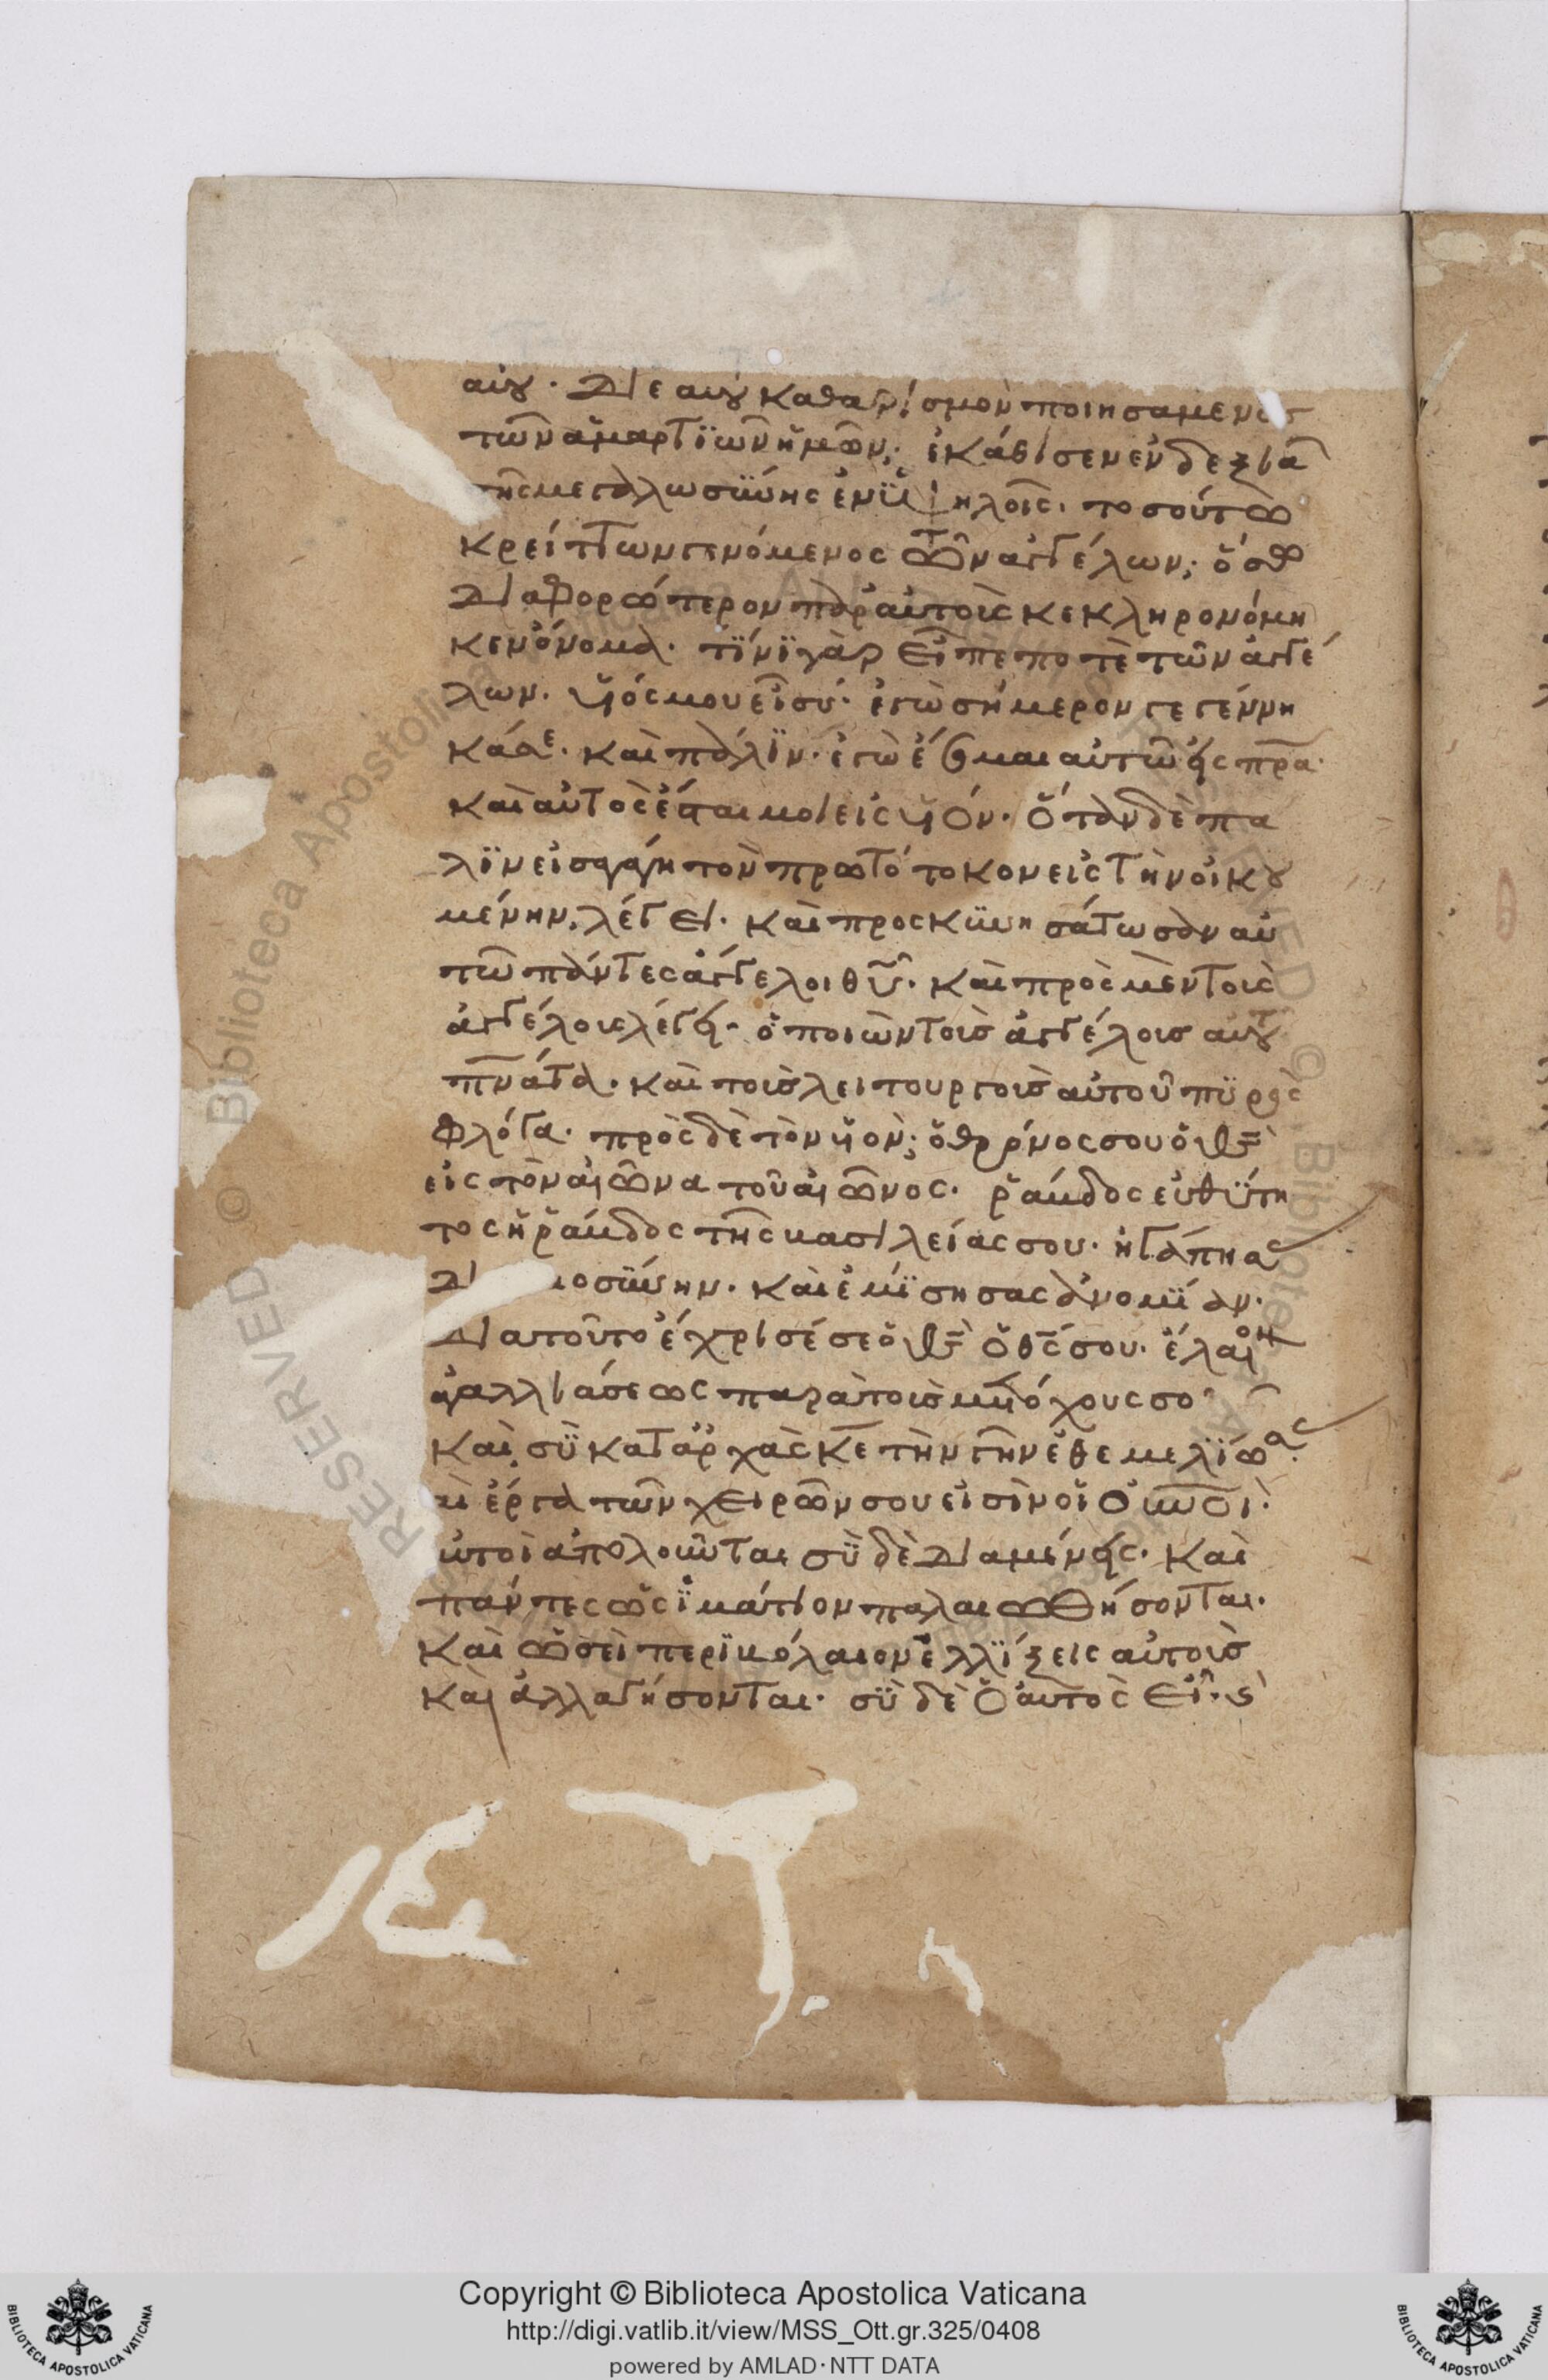 αυτου. Δι ε αυτου καθαρισμὸν ποιησαμενος
τῶν ἁμαρτϊων ἡμῶν, ἐκάθισεν ἐν δεξιᾶ
τῆς μεγαλωσϋνης ἐν ϋψηλοῖς. τοσούτω
κρείττων γενόμενος τῶν ἀγγέλων, ὅσω
Διαφορώτερον παρ αὐτοὺς κεκληρονόμη
κεν ὄνομα. τϊνϊ γὰρ εἶπε ποτὲ τῶν ἀγγέ
λων. υἱός μου εἶ σύ. ἐγὼ σήμερον γεγέννη
κά σε. καὶ πάλϊν. ἐγὼ ἔσομαι αὐτῶ εἰς πρα.
καὶ αὐτὸς ἔσται μοι εἰς υἱόν. ὅταν δὲ πα
λϊν εἰσαγάγη τὸν πρωτότοκον εἰς τὴν οἰκου
μένην, λέγει. καὶ προσκϋνησάτωσαν αὐ
τῶ πάντες ἄγγελοι θυ. καὶ πρὸς μὲν τοὺς
ἀγγέλους λέγει. ὁ ποιῶν τοὺς ἀγγέλους αὐτου
πνατα. καὶ τοὺς λειτουργοὺς αὐτοῦ πϋρὸς
φλόγα. πρὸς δὲ τὸν υἱὸν, ὁ θρόνος σου ὁ θς
εἰς τὸν αἰῶνα τοῦ αἰῶνος. ῥάβδος εὐθϋτη
τος ἡ ῥάβδος τῆς βασιλείας σου. ἠγάπησας
Δι οσϋνην. καὶ ἐμϊσησας ἀνομϊαν.
Διατοῦτο ἔχρισέ σε ὁ θς ὁ θς σου. ἔλαιον
ἀγαλλιάσεως παρὰ τοὺς μετόχους σο
Καὶ, σϋ κατ ἀρχὰς κε τὴν γῆν ἐθεμελϊωσας.
καὶ ἔργα τῶν χειρῶν σου εἰσὶν οἱ οὐνοι.
αὐτοὶ ἀπολοῦνται σϋ δὲ Διαμένεις. Καὶ
πάντες ὡς ϊμάτιον παλαιωθήσονται.
Καὶ ὡσεὶ περϊβόλαιον ἑλλϊξεις αὐτοὺς
Καὶ ἀλλαγήσονται. σϋ δὲ ὁ αὐτὸς εἶ. καὶ
Copyright © Biblioteca Apostolica Vaticana
http://digi.vatlib.it/view/MSS_Ott.gr.325/0408
powered by AMLAD·NTT DATA